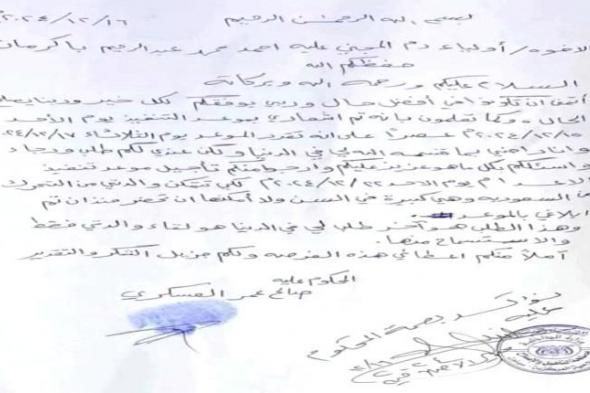 بسم الله الرحمن الرحيم ٢٠٢٤/١٢/١٦م
الاخوه/ أولياء دم المجني عليه احمد محمد عبدالرحيم باكرمان
حفظكم الله
السلام عليكم ورحمة الله وبركاته
أتمنى أن تكونو في أفضل حال وربي يوفقكم لكل خير وبدنا يصلح
الحال. وكما تعلمون بأنه تم اشعاري بموعد التنفيذ يوم الأحد
٢٠٢٤/١٢/١٥م عصراً على انه تقرر الموعد يوم الثلاثاء ٢٠٢٤/١٢/١٧
وانا راضي بما قسمه الله لي في الدنيا ولكن عندي لكم طلب ورجاء
واسئلكم بكل ما هو عزيز عليكم وارجوا منكم تأجيل موعد تنفيذ
الاعدام يوم الاحد ٢٠٢٤/١٢/٢٢م لكي تتمكن والدتي من التحرك
من السعوديه وهي كبيرة في السن ولا أمكنها ان تحضر منذ ان تم
ابلاغي بالموعد
وهذا الطلب هو آخر طلب لي في الدنيا هو لقاء والدتي فقط
والاستسماح منها.
آملاً منكم اعطائي هذه الفرصه ولكم جزيل الشكر والتقدير
المحكوم عليه
صالح عمر العسكري
نؤكد بصمة المحكوم
عليه